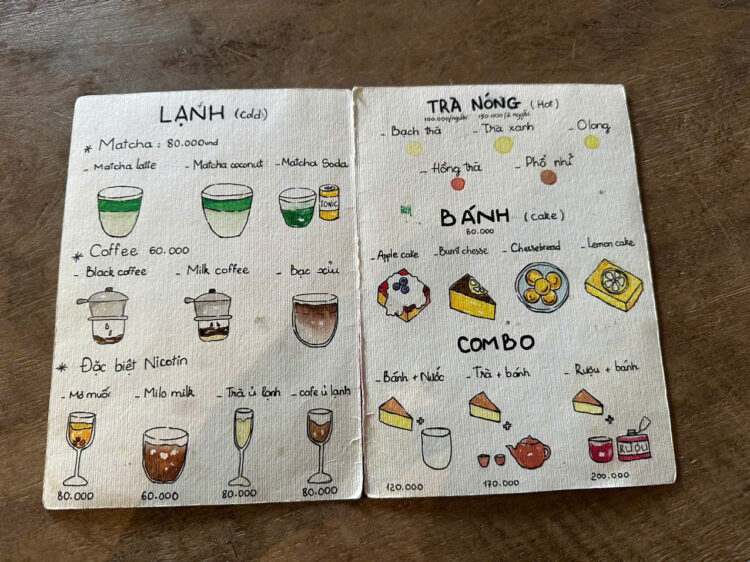 LẠNH (Cold)
* Matcha : 80.000vnd
- Matcha latte - Matcha coconut - Matcha Soda
TONIC
* Coffee 60.000
- Black coffee - Milk coffee - Bạc xỉu
* Đặc biệt Nicotin
- Mơ muối - Milo milk - Trà ủ lạnh - cafe ủ lạnh
80.000 60.000 80.000 80.000
TRÀ NÓNG (Hot)
100.000/người 150.000/2 người
- Bạch trà - Trà xanh - Olong
- Hồng trà - Phổ nhĩ
BÁNH (cake)
60.000
- Apple cake - Burnt chesse - Cheesebread - Lemon cake
COMBO
- Bánh + Nước - Trà + bánh - Rượu + bánh
+ + +
RƯỢU
120.000 170.000 200.000